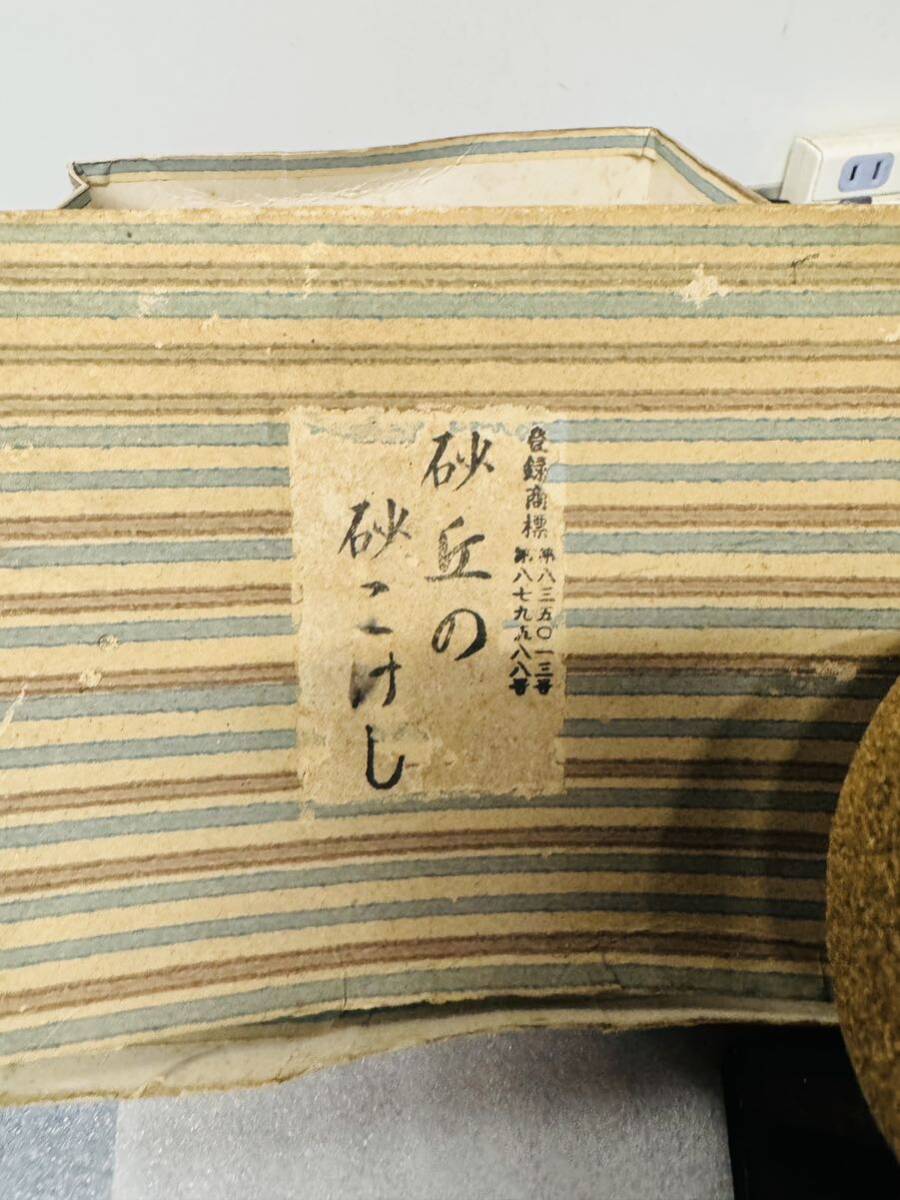 登録商標 第八三五〇一三号
第八七九五八八号
砂丘の
砂こけし